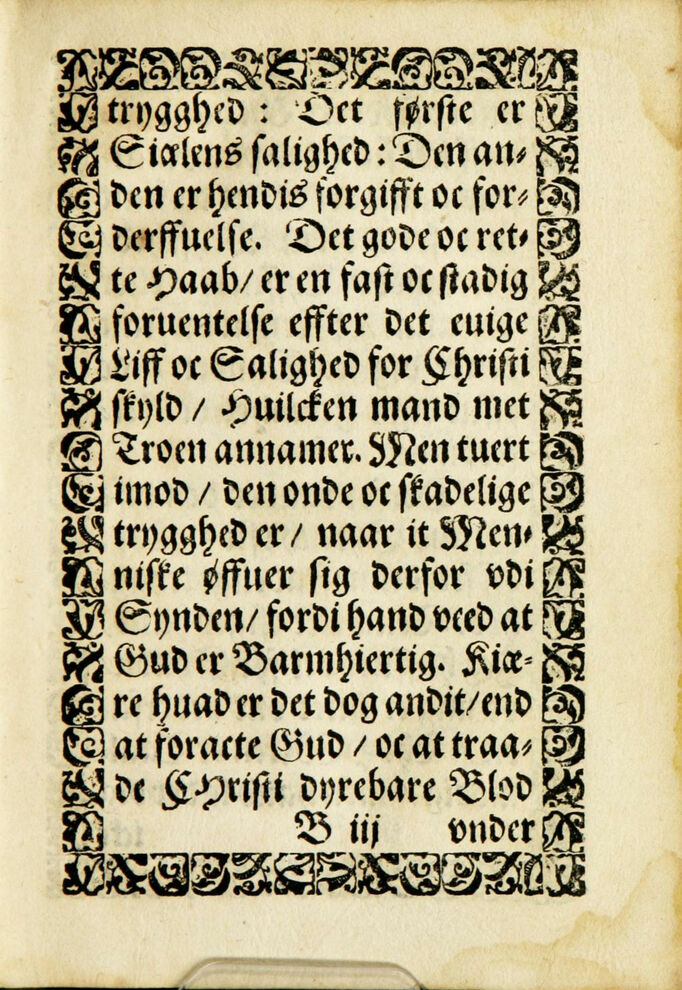 trygghed : Det første er
Siælens salighed : Den an⸗
den er hendis forgifft oc for⸗
derffuelse. Det gode oc ret⸗
te Haab/ er en fast oc stadig
foruentelse effter det euige
Liff oc Salighed for Christi
skyld / Huilcken mand met
Troen annamer. Men tuert
imod / den onde oc skadelige
trygghed er / naar it Men⸗
niske øffuer sig derfor vdi
Synden/ fordi hand veed at
Gud er Barmhiertig. Kiæ⸗
re huad er det dog andit/end
at foracte Gud / oc at traa⸗
de CHristi dyrebare Blod
B iij vnder